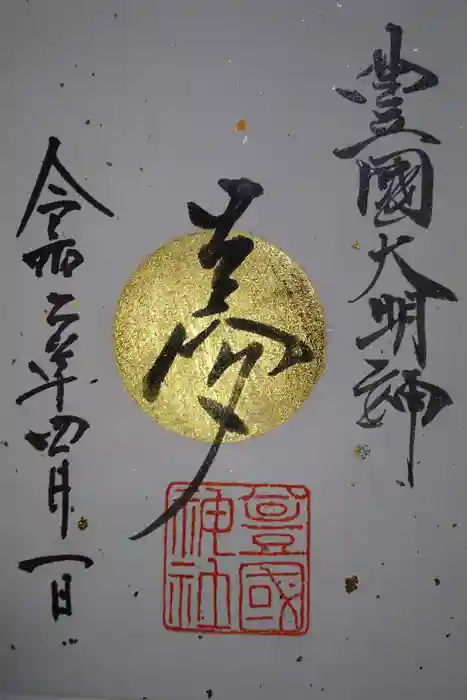 豐國大明神
夢
豊國神社
令和二年四月一日